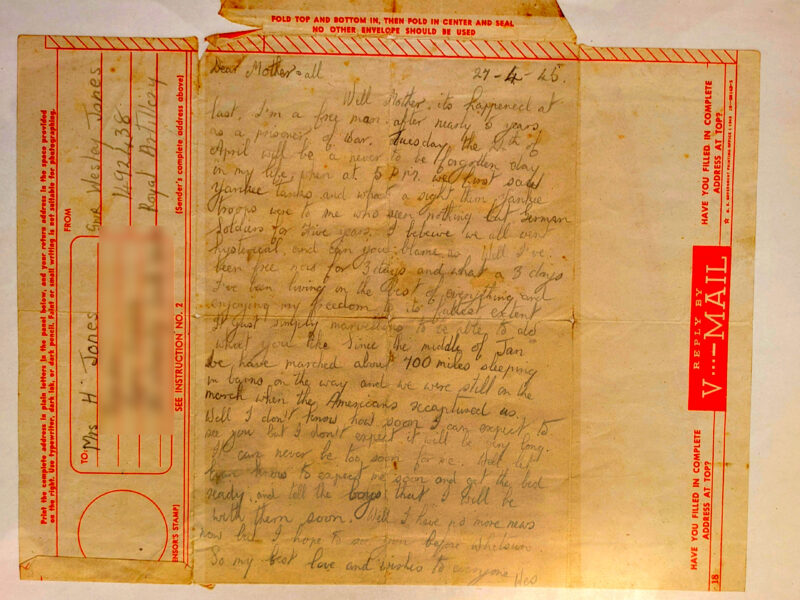 FOLD TOP AND BOTTOM IN, THEN FOLD IN CENTER AND SEAL
NO OTHER ENVELOPE SHOULD BE USED
Print the complete address in plain letters in the panel below, and your return address in the space provided
on the right. Use typewriter, dark ink, or dark pencil. Faint or small writing is not suitable for photographing.
TO:
Mrs H. Jones
FROM
Gnr Wesley Jones
1492438
Royal Artillery
(Sender's complete address above)
SEE INSTRUCTION NO. 2
ENSOR'S STAMP)
Dear Mother & all
27-4-45.
Well Mother, its happened at
last, I'm a free man after nearly 5 years
as a prisoner of War. Tuesday the 24th of
April will be a never to be forgotten day
in my life, when at 5 P.M. we first saw
Yankee tanks and what a sight them Yankee
troops were to me who seen nothing but German
Soldiers for Five years. I beleive we all went
hysterical, and can you blame us. Well I've
been free now for 3 days and what a 3 days
I've been living on the Best of everything and
enjoying my freedom to its fullest extent
It just simply marvellous to be able to do
what you like Since the middle of Jan
we have marched about 700 miles sleeping
in barns on the way and we were still on the
march when the Americans recaptured us.
Well I don't know how soon I can expect to
see you but I don't expect it will be very long.
It can never be too soon for me. Well let
know to expect me soon and get the bed
ready, and tell the boys that I will be
with them soon. Well I have no more news
now but I hope to see you before Whitsun
So my best love and wishes to everyone
Wes
HAVE YOU FILLED IN COMPLETE
ADDRESS AT TOP?
REPLY BY
V···—MAIL
HAVE YOU FILLED IN COMPLETE
ADDRESS AT TOP?
18